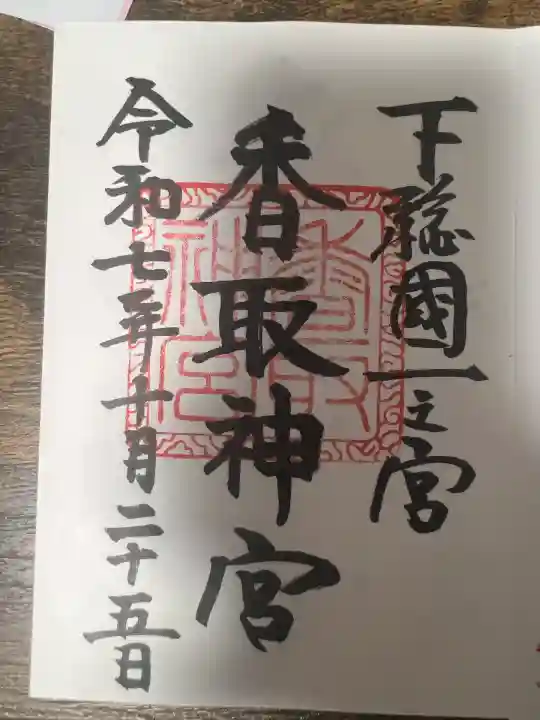 下聡國一之宮
香取神宮
令和七年十月二十五日
香取
神宮